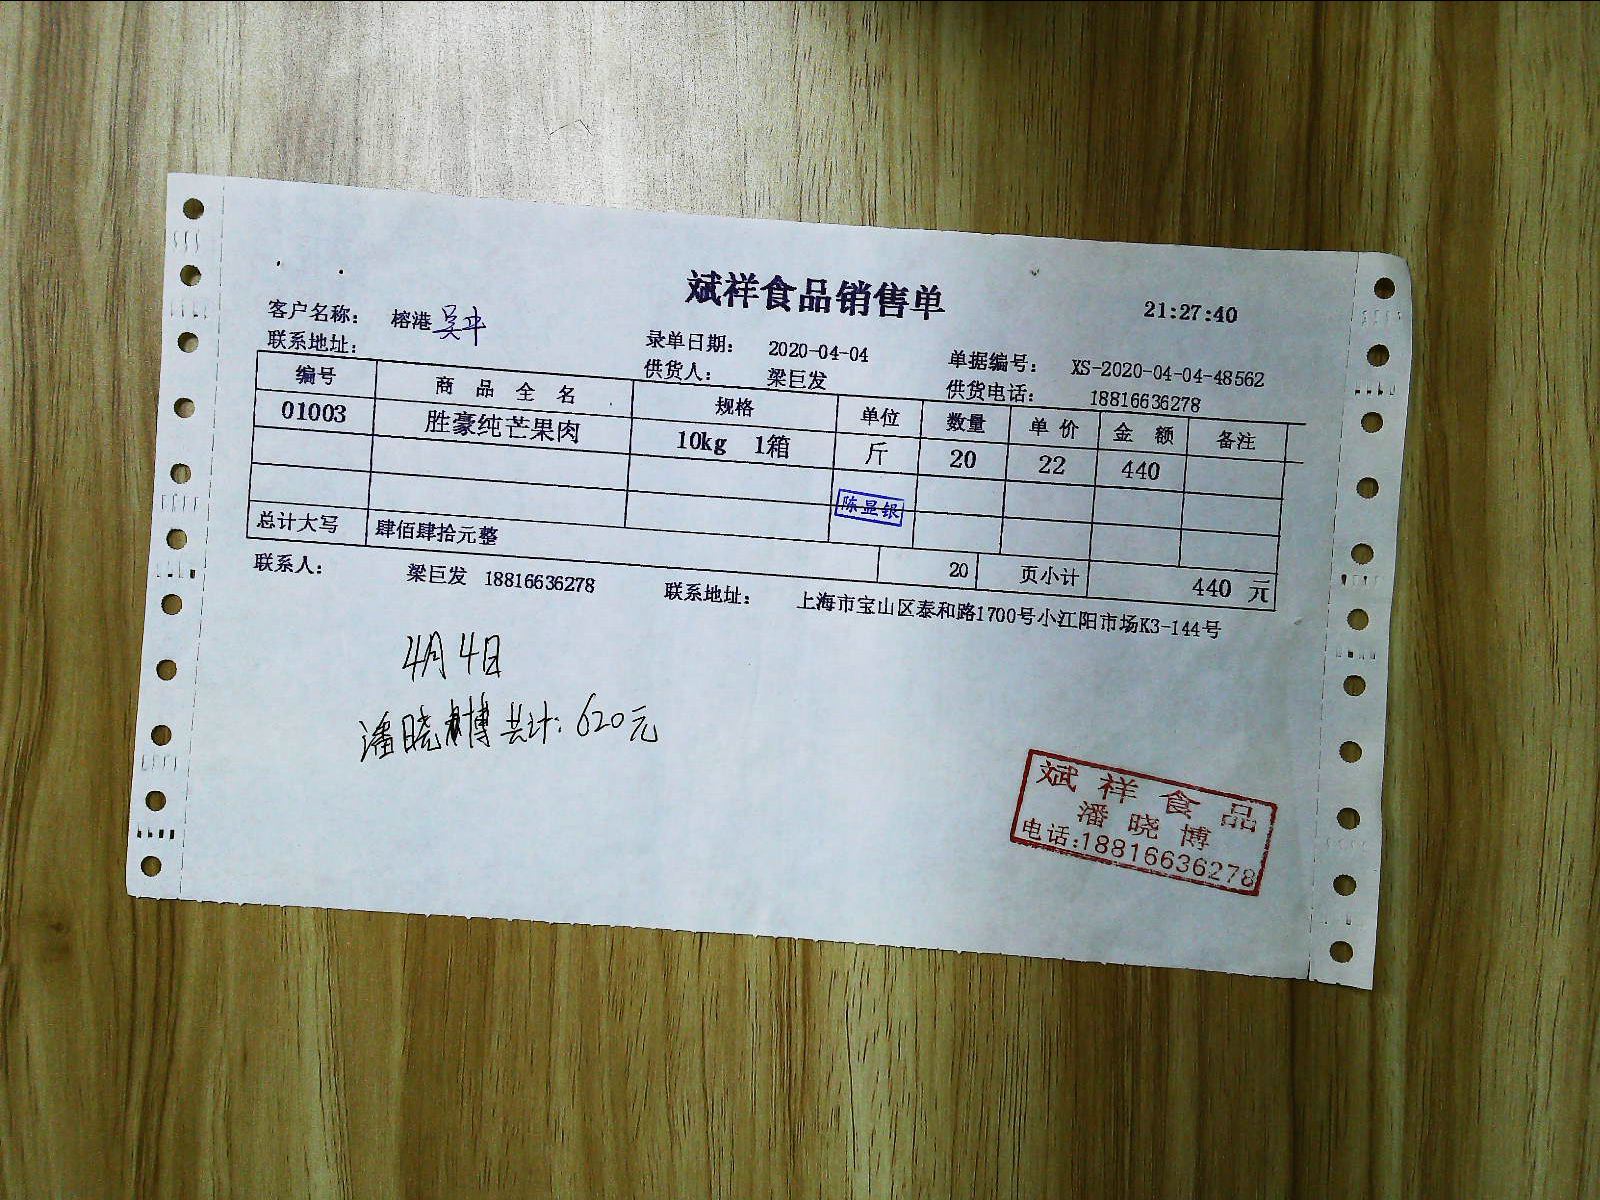 斌祥食品销售单
21:27:40
客户名称： 榕港
录单日期： 2020-04-04 单据编号： XS-2020-04-04-48562
联系地址： 供货人： 梁巨发 供货电话： 18816636278
编号 商品全名 规格 单位 数量 单价 金额 备注
01003 胜豪纯芒果肉 10kg 1箱 斤 20 22 440
陈显银
总计大写 肆佰肆拾元整 20 页小计 440 元
联系人： 梁巨发 18816636278 联系地址： 上海市宝山区泰和路1700号小江阳市场K3-144号
4月4日
潘晓博共计：620元
斌祥食品
潘晓博
电话:18816636278